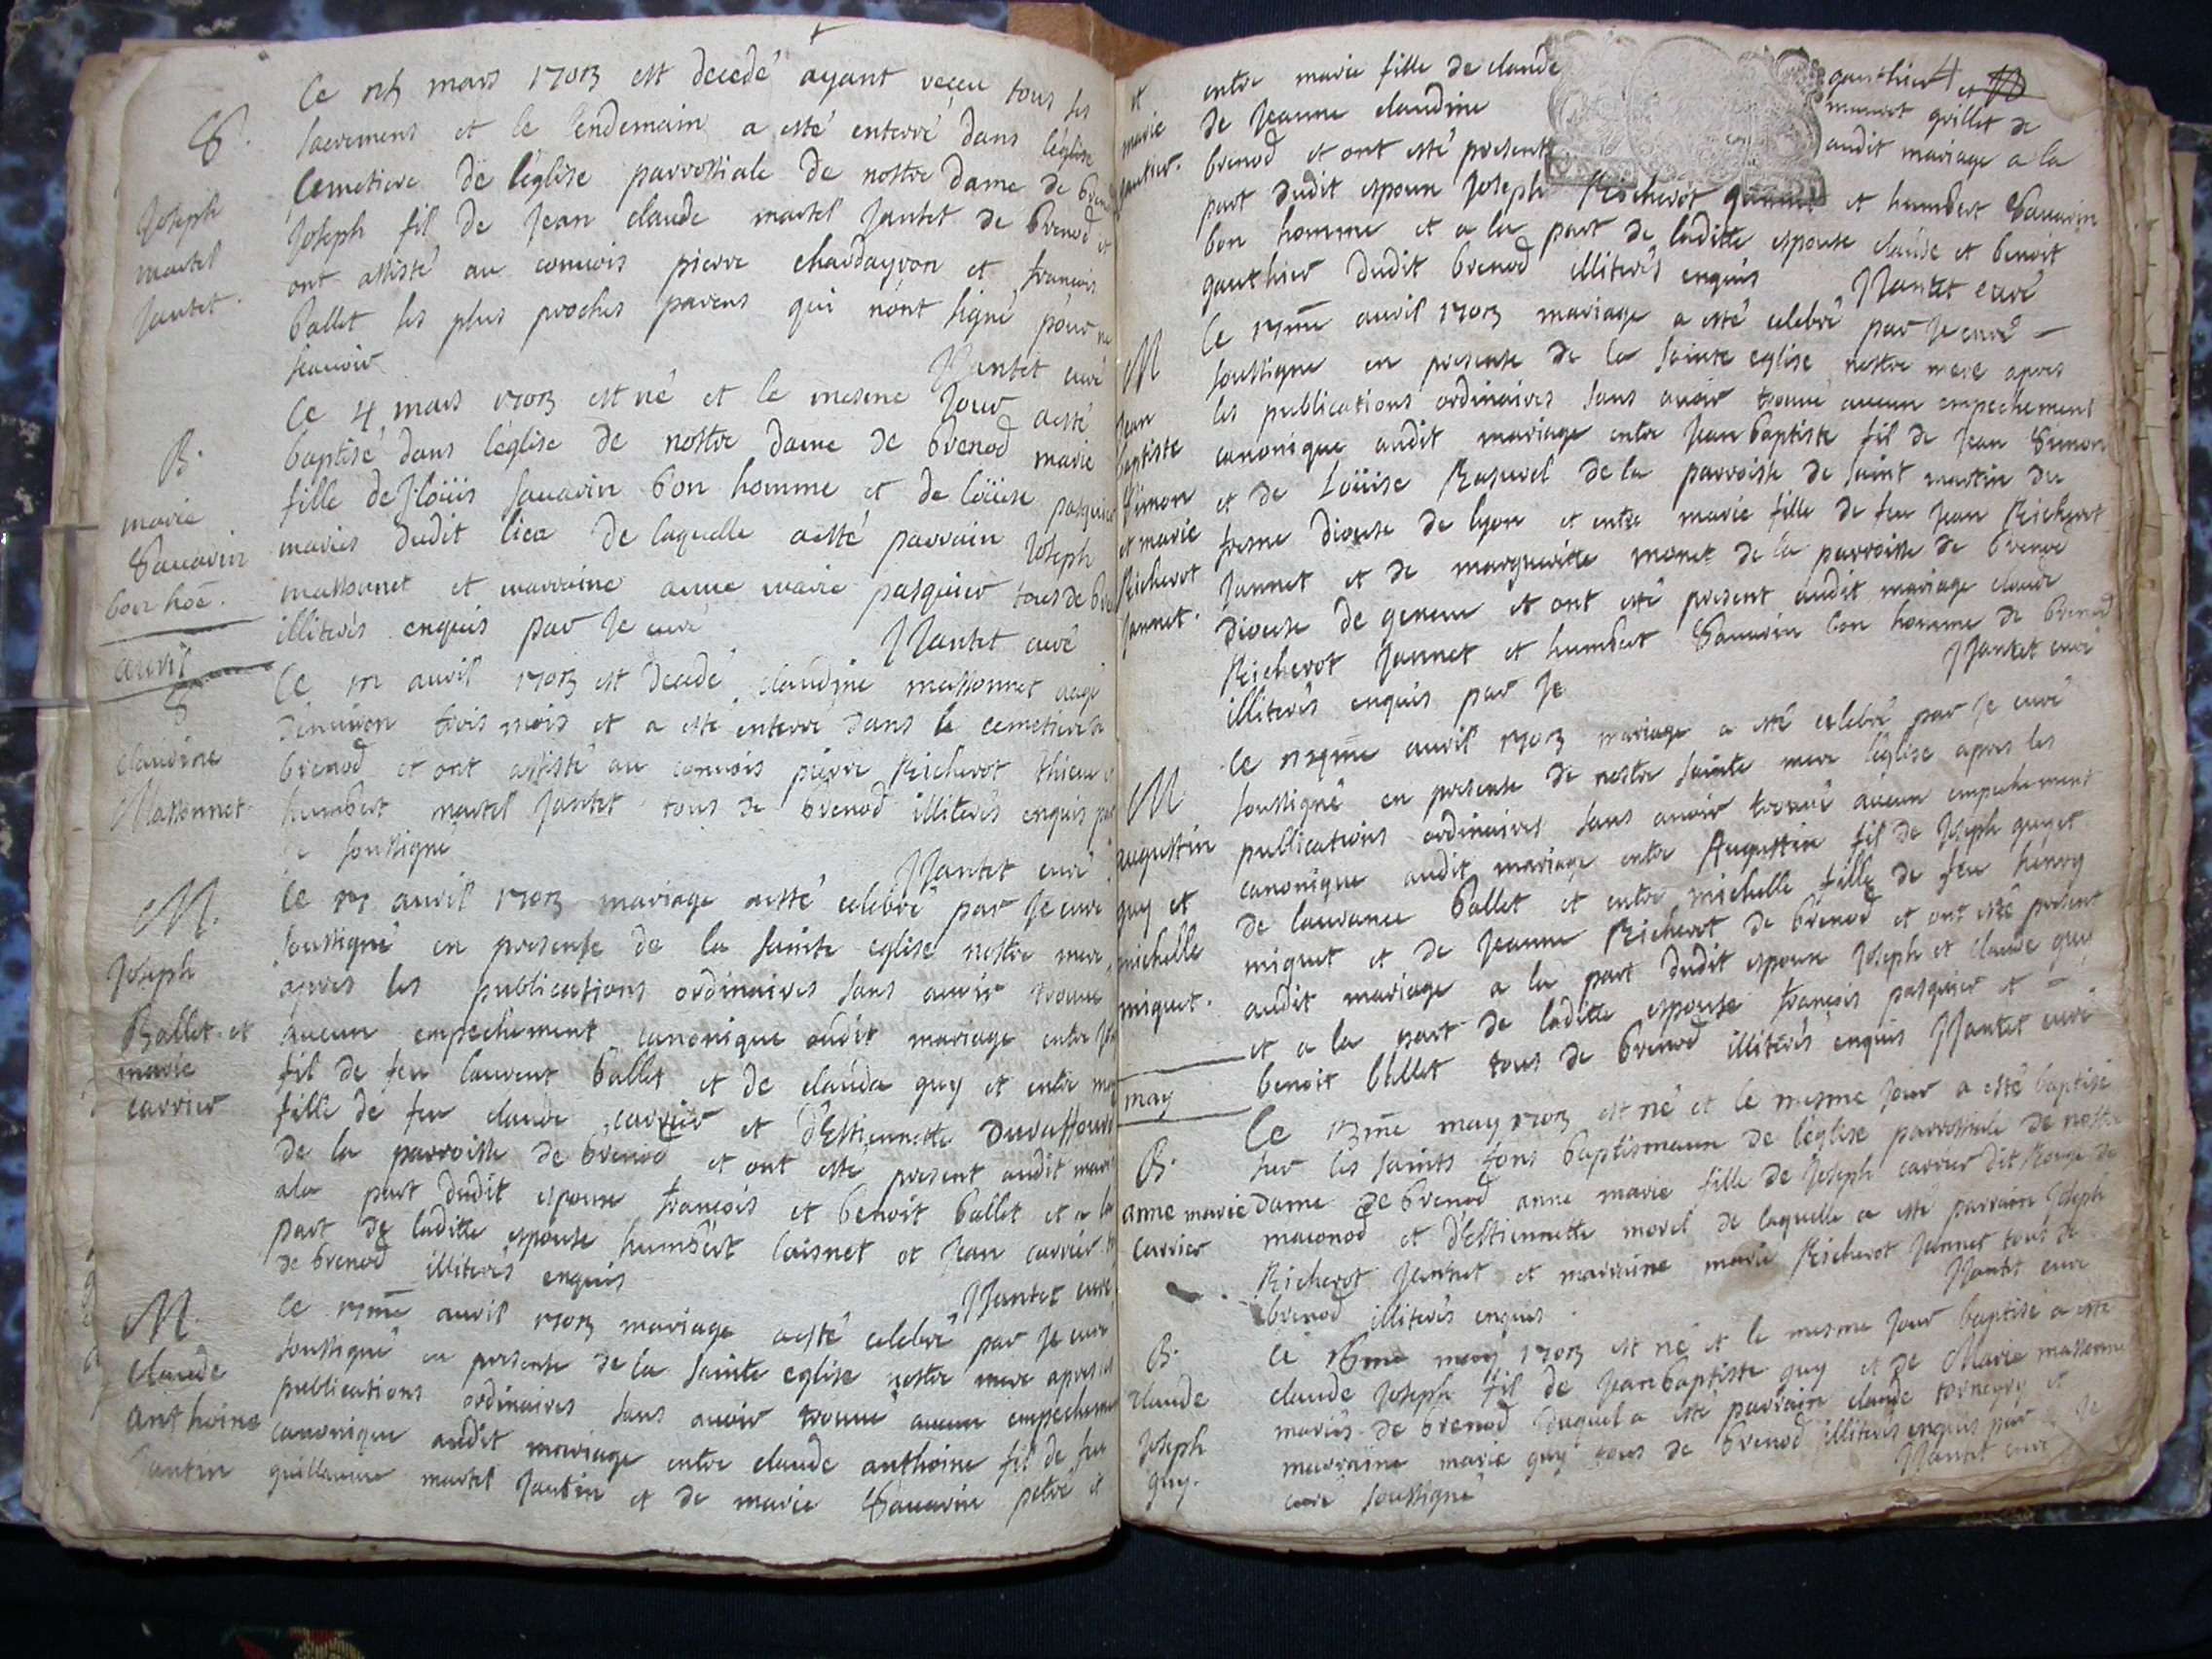 S.
Joseph
martel
Jantet.
Ce mars 1703 est decedé ayant reçeu tous ses
sacremens et le lendemain a esté enterré dans l'église
Cemetiere de l'église parrossiale de nostre dame de
Joseph fil de Jean claude martel Jantet de brenod et
ont assisté au convois pierre chardayron et francois
ballet ses plus proches parens qui n'ont signé pour ne
scauoir
Nantet curé
B.
marie
Sauarin
bon hoe.
Ce 4 mars 1703 est né et le mesme Jour aesté
baptisé dans l'église de nostre dame de brenod marie
fille de loüis sauarin bon homme et de loüise pasquier
maries dudit lieu de laquelle aesté parrain Joseph
massonnet et marraine anne marie pasquier tous de
illiterés enquis par Je curé
Nantet curé
auril
S
claudine
Massonnet
Ce auril 1703 est decedé claudine massonnet aagé
d'enuiron trois mois et a esté enterré dans le cemetiere de
brenod et ont assisté au conuois pierre Richerot thieue et
humbert martel Jantet tous de brenod illiterés enquis par
soussigné
Nantet curé
M.
Joseph
Ballet et
marie
carrier
Ce auril 1703 mariage aesté celebré par Je curé
soussigné en presense de la sainte eglise nostre mere
apres les publications ordinaires sans auoir trouué
aucun empechement canonique audit mariage entre
fil de feu laurent ballet et de clauda guy et entre
fille de feu claude carrier et d'Estiennette
de la parroisse de brenod et ont esté present audit
ala part dudit espoux francois et benoit ballet et a la
part de laditte espouse humbert loisnet et Jean carrier
de brenod illiterés enquis
Nantet curé
M.
claude
anthoine
Jantin
Ce 17me auril 1703 mariage aesté celebré par Je curé
soussigné en presense de la sainte eglise nostre mere apres les
publications ordinaires sans auoir trouué aucun empechement
canonique audit mariage entre claude anthoine fil de feu
guillaume martel Jantin et de marie Sauarin petré et
4
et
marie
gautier.
entre marie fille de claude gauthier et
de Jeanne claudine monet grillet de
brenod et ont esté present audit mariage a la
part dudit espoux Joseph Richerot et humbert Sauarin
bon homme et a la part de laditte espouse claude et benoit
gauthier dudit brenod illiterés enquis Nantet curé
M
Jean
baptiste
Simon
et marie
Richerot
Jannet.
Ce 17me auril 1703 mariage a esté celebré par Je curé
soussigné en presense de la sainte eglise nostre mere apres
les publications ordinaires sans auoir trouué aucun empechement
canonique audit mariage entre Jean baptiste fil de Jean Simon
et de Loüise Rasurel de la parroisse de saint martin du
fresne diouse de lyon et entre marie fille de feu Jean Richerot
Jannet et de margueritte monet de la parroisse de brenod
diouse de geneue et ont esté present audit mariage claude
Richerot Jannet et humbert Sauarin bon homme de brenod
illiterés enquis par Je
Nantet curé
M
augustin
guy et
michelle
miquet.
Ce auril 1703 mariage a esté celebré par Je curé
soussigné en presense de nostre sainte mere l'église apres les
publications ordinaires sans auoir trouué aucun empechement
canonique audit mariage entre Augustin fil de Joseph guy et
de laurance ballet et entre michelle fille de feu henry
miquet et de Jeanne Richerot de brenod et ont esté present
audit mariage a la part dudit espoux Joseph et claude guy
et a la part de laditte espouse francois pasquier et
benoit ballet tous de brenod illiterés enquis Nantet curé
may
B.
anne marie
Carrier
Ce 13me may 1703 est né et le mesme Jour a esté baptisé
sur les saints fons baptismaux de l'église parrossiale de nostre
dame de brenod anne marie fille de Joseph carrier dit Rouge de
maconod et d'Estiennette morel de laquelle a esté parrain Joseph
Richerot Jannet et marraine marie Richerot Jannet tous de
brenod illiterés enquis.
Nantet curé
B.
claude
Joseph
guy.
Ce 16me may 1703 est né et le mesme Jour baptisé a esté
claude Joseph fil de Jean baptiste guy et de Marie massonnet
mariés de brenod duquel a esté parrain claude torneyry et
marraine marie guy tous de brenod illiterés enquis par Je
curé soussigné
Nantet curé